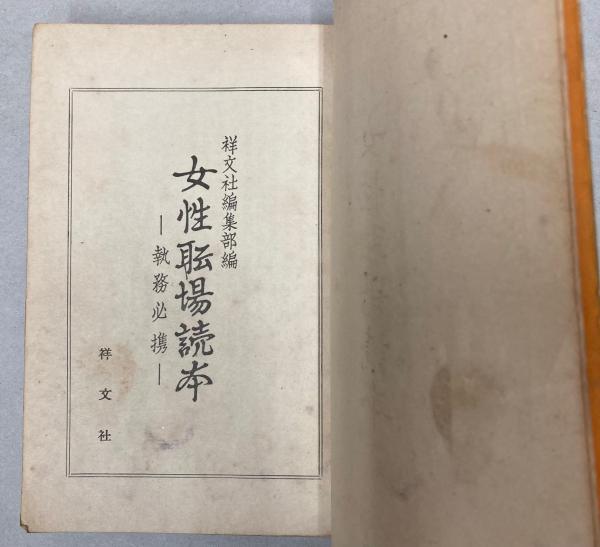 祥文社編集部編
女性耺場読本
―執務必携―
祥文社